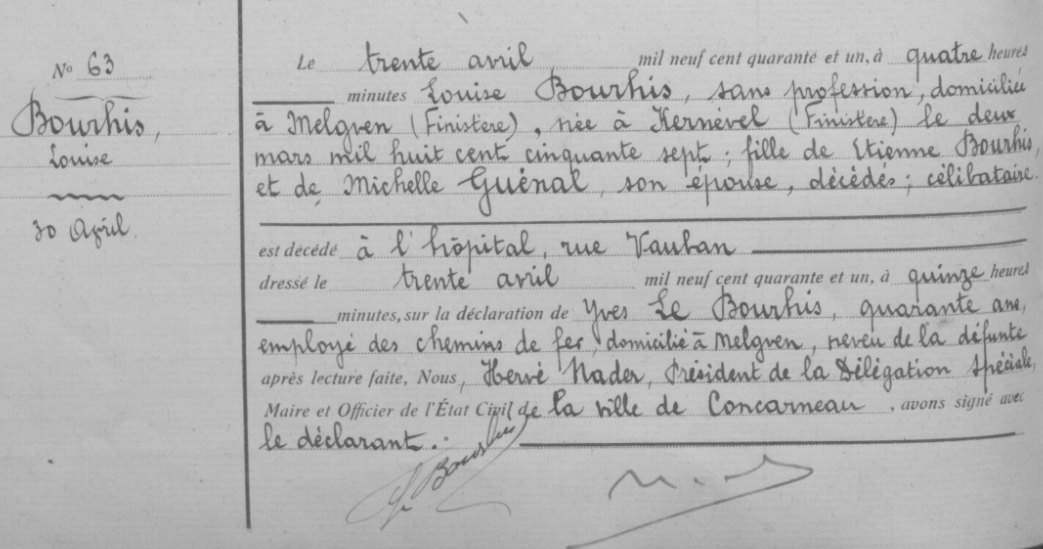 N° 63
Bourhis,
Louise
30 April.
Le trente avril mil neuf cent quarante et un, à quatre heures
minutes Louise Bourhis, sans profession, domiciliée
à Melgven (Finistère), née à Kernével (Finistère) le deux
mars mil huit cent cinquante sept ; fille de Etienne Bourhis,
et de Michelle Guénal, son épouse, décédés ; célibataire.
est décédé à l'hôpital, rue Vauban
dressé le trente avril mil neuf cent quarante et un, à quinze heures
minutes, sur la déclaration de Yves Le Bourhis, quarante ans,
employé des chemins de fer, domicilié à Melgven, neveu de la défunte
après lecture faite, Nous, Hervé Nader, Président de la Délégation Spéciale,
Maire et Officier de l'État Civil de la ville de Concarneau, avons signé avec
le déclarant.
Bourhis